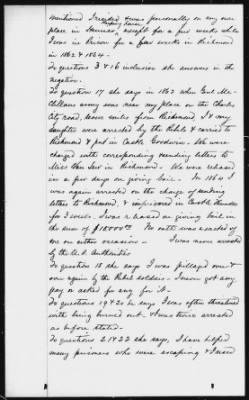 mentioned I resided
personally on my own
place in Henrico, except for a few weeks while
I was in Prison for a few weeks in Richmond
in 1862 & 1864 -
To questions 3 & 16 inclusive she answers in the
negative -
To question 17 she says in 1862 when Genl Mc-
Clellans army was near my place on the Charles
City road, seven miles from Richmond, I & my
daughter were arrested by the Rebels & carried to
Richmond & put in Castle Goodwin. We were
charged with corresponding & sending letters to
Miss Van Lew in Richmond. We was released
in a few days on giving bail. In 1864 I
was again arrested on the charge of sending
letters to Richmond, & imprisoned in Castle Thunder
for 3 weeks. I was released on giving bail in
the sum of $10000.00 No oath was exacted of
me on either occasion - I was never arrested
by the U.S. Authorities
To question 18 she says I was pillaged over &
over again by the Rebel soldiers - I never got any
pay or asked for any for it -
To questions 19 & 20 he says I was often threatened
with being burned out - & was twice arrested
as before stated -
To questions 21 & 22 she says, I have helped
many prisoners who were escaping & I used